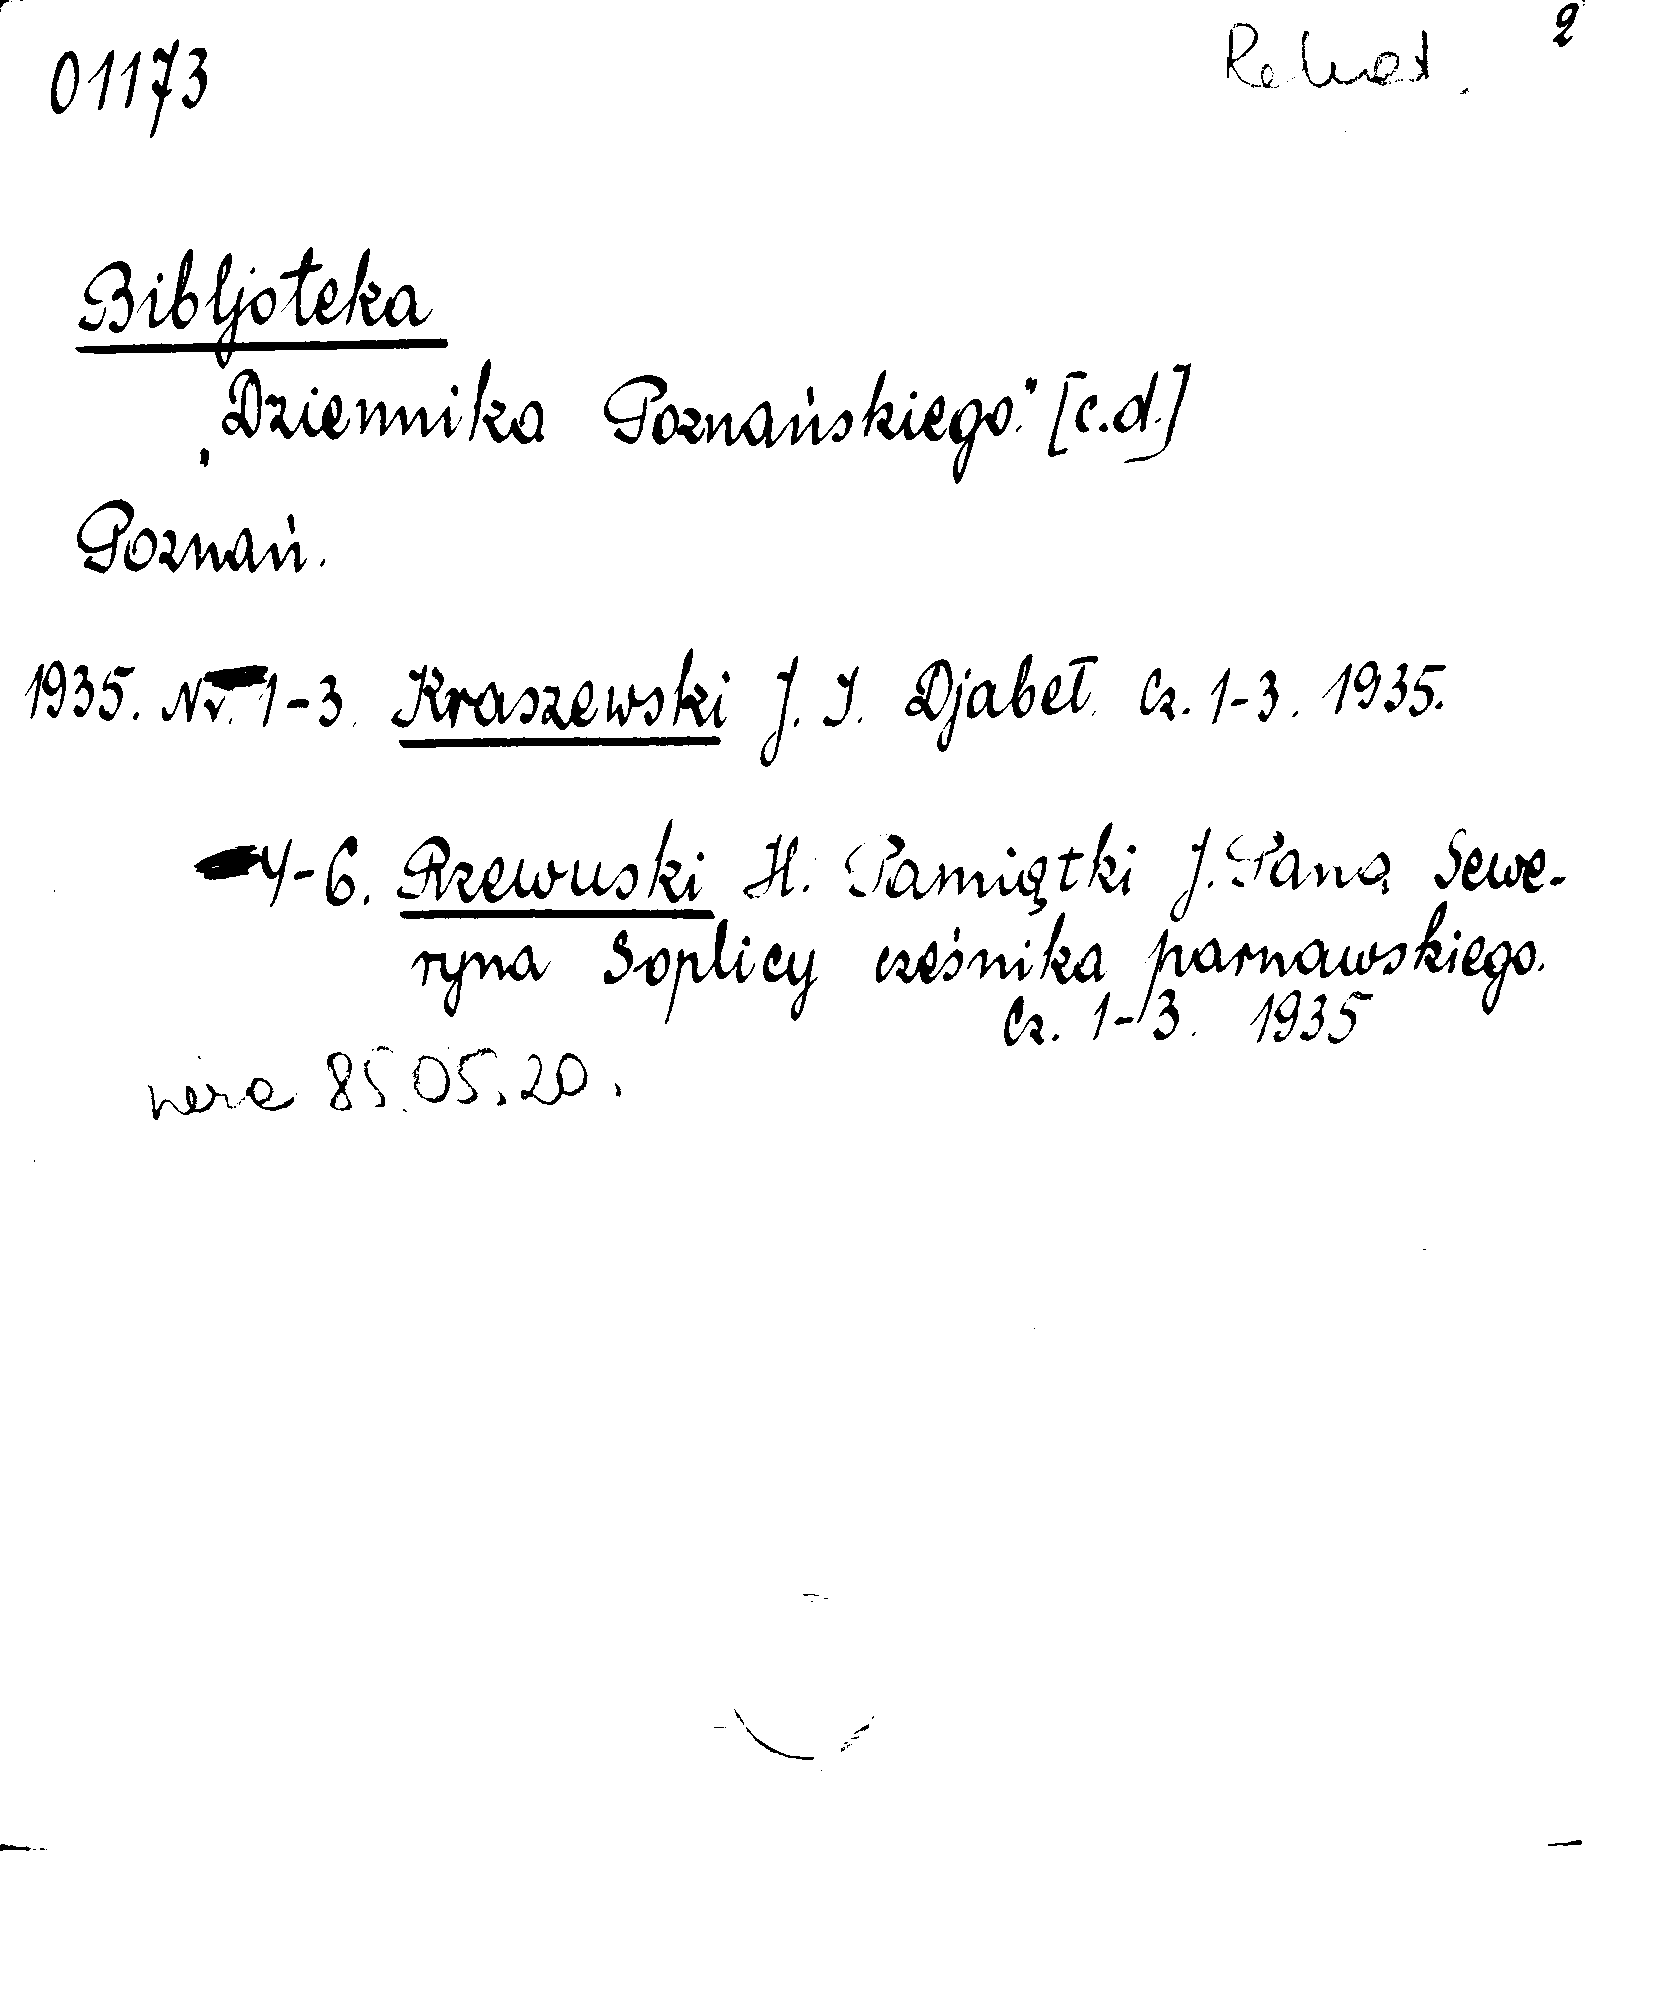 01173
2
Bibljoteka
„Dziennika Poznańskiego." [c.d.]
Poznań.
1935. Nr. 1-3. Kraszewski J. I. Djabeł. Cz. 1-3. 1935.
4-6. Rzewuski H. Pamiątki J. Pana Sewe-
ryna Soplicy cześnika parnawskiego.
Cz. 1-3. 1935
85.05.20.